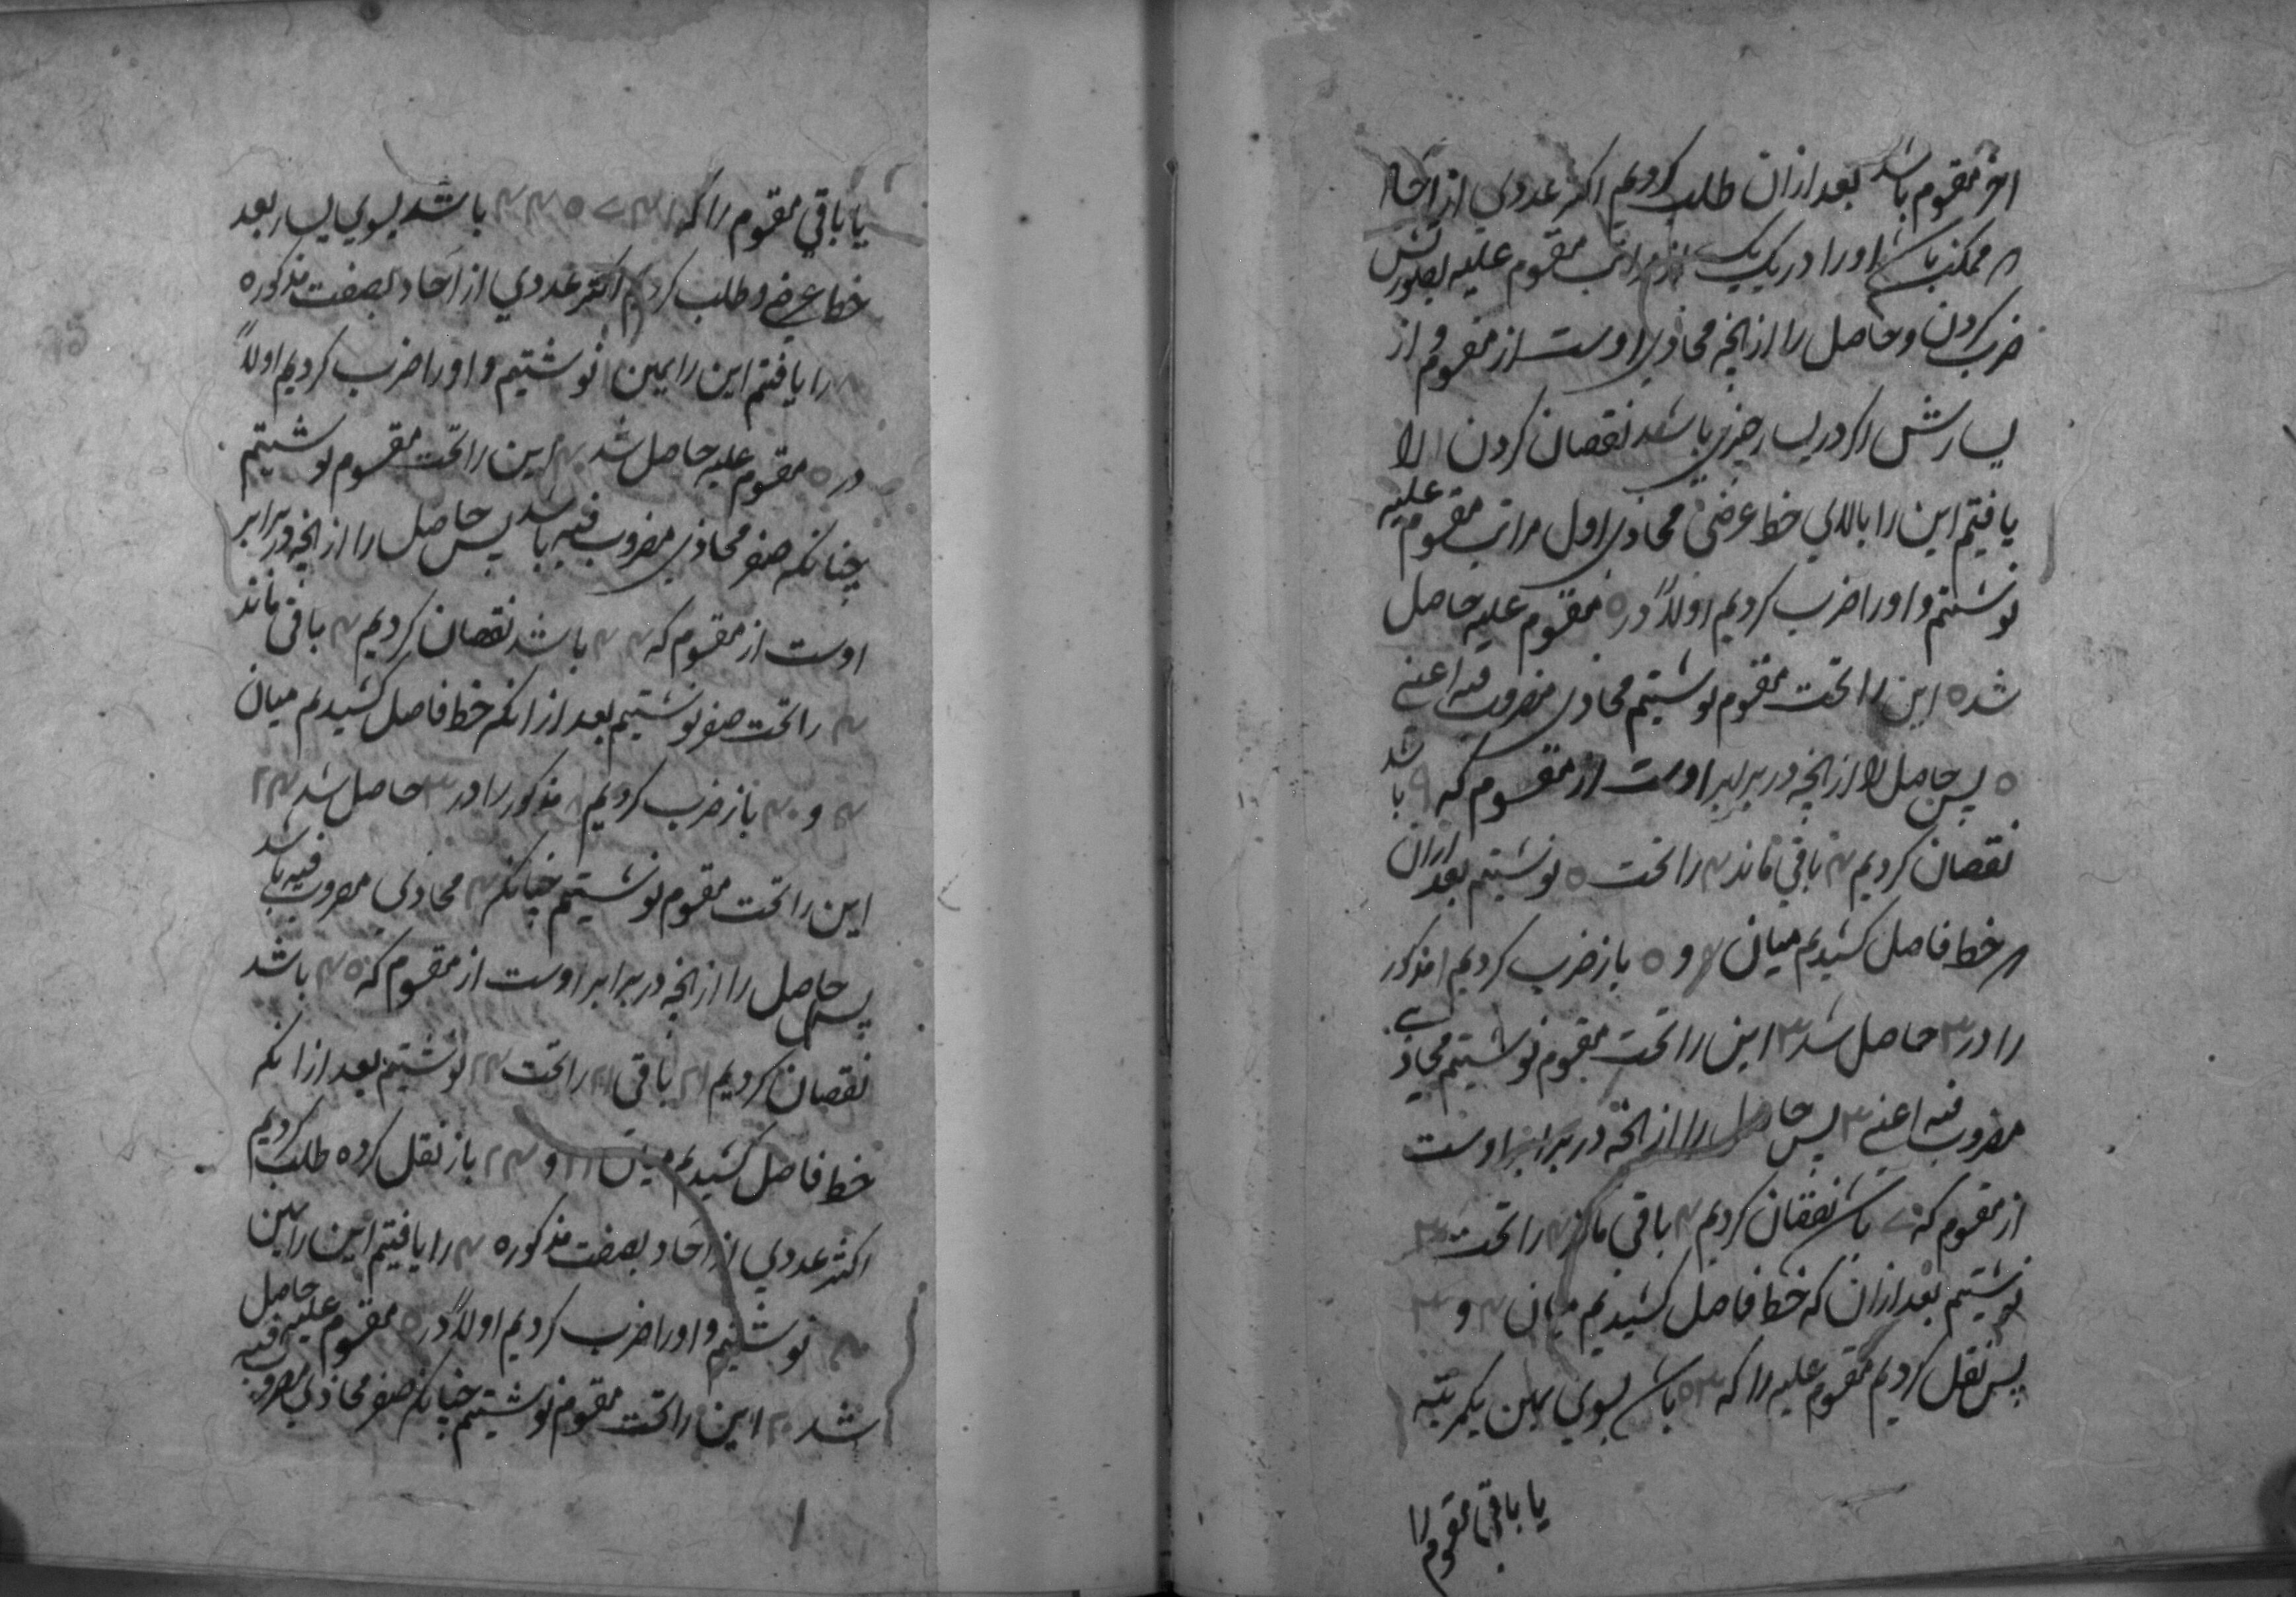 اخر مقسوم باشد بعد ازان طلب کردیم اکثر عددی از احاد
که ممکن باشد اورا در یک یک از مراتب مقسوم علیه بصورتش
ضرب کردن و حاصل را از انچه محاذی اوست از مقسوم و از
یسارش اکر در یسار چیزی باشد نقصان کردن ا را
یافتیم این را بالای خط عرضی محاذی اول مراتب مقسوم علیه
نوشتیم و اورا ضرب کردیم اولاً در ۵ مقسوم علیه حاصل
شد ۵ این را تحت مقسوم نوشتیم محاذی مضروب فیه اعنے
۵ پس حاصل را از انچه در برابر اوست از مقسوم که ۹ باشد
نقصان کردیم ۴ باقی ماند ۴ را تحت ۵ نوشتیم بعد ازان
که خط فاصل کشیدیم میان ۴ و ۵ باز ضرب کردیم ا مذکور
را در ۳ حاصل شد ۳ این را تحت مقسوم نوشتیم محاذی
مضروب فیه اعنے ۳ پس حاصل را از انچه در برابر اوست
از مقسوم که ۷ باشد نقصان کردیم ۴ باقی ماند ۴ را تحت ۳
نوشتیم بعد ازان که خط فاصل کشیدیم میان ۴ و ۳
پس نقل کردیم مقسوم علیه را که ۵۳ باشد بسوی یمین یکمرتبه
یا باقی مقسوم را
یا باقی مقسوم را که باشد بسوی یسار بعد
خط عرضی و طلب کردیم اکثر عددی از احاد بصفت مذکوره
را یافتیم این را یمین ا نوشتیم و اورا ضرب کردیم اولاً
در ۵ مقسوم علیه حاصل شد ۴۰ این را تحت مقسوم نوشتیم
چنانکه صفر محاذی مضروب فیه باشد پس حاصل را از انچه در برابر
اوست از مقسوم که ۴۴ باشد نقصان کردیم ۴ باقی ماند
۴ را تحت صفر نوشتیم بعد از انکه خط فاصل کشیدیم میان
۴ و ۴۰ باز ضرب کردیم ۸ مذکور را در ۳ حاصل شد ۲۴
این را تحت مقسوم نوشتیم چنانکه ۴ محاذی مضروب فیه باشد
پس حاصل را از انچه در برابر اوست از مقسوم که ۴۵ باشد
نقصان کردیم ۲۱ باقی ۲۱ را تحت ۲۴ نوشتیم بعد از انکه
خط فاصل کشیدیم میان ۲۱ و ۲۴ باز نقل کرده طلب کردیم
اکثر عددی از احاد بصفت مذکوره ۴ را یافتیم این را یمین
نوشتیم و اورا ضرب کردیم اولاً در ۵ مقسوم علیه حاصل
شد ۲۰ این را تحت مقسوم نوشتیم چنانکه صفر محاذی مضروب فیه